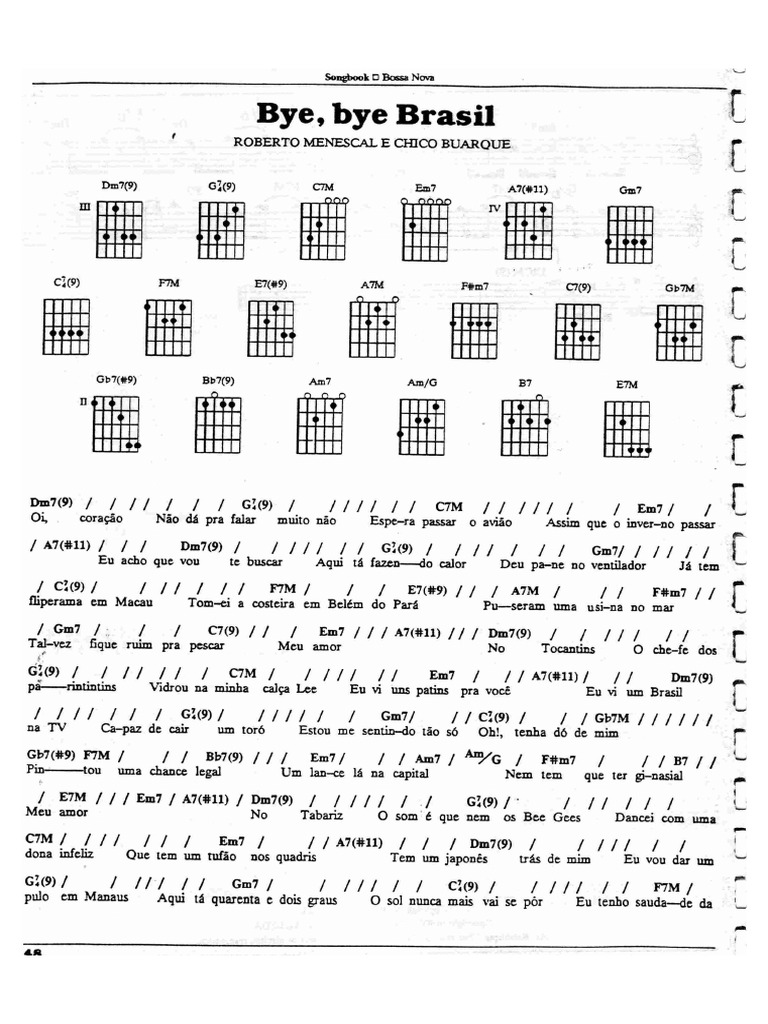 Songbook □ Bossa Nova
Bye, bye Brasil
ROBERTO MENESCAL E CHICO BUARQUE
Dm7(9) G7/4(9) C7M Em7 A7(#11) Gm7
III IV
C7/4(9) F7M E7(#9) A7M F#m7 C7(9) Gb7M
Gb7(#9) Bb7(9) Am7 Am/G B7 E7M
II
Dm7(9) / / / / / / / G7/4(9) / / / / / / / C7M / / / / / / / Em7 / /
Oi, coração Não dá pra falar muito não Espe-ra passar o avião Assim que o inver-no passar
/ A7(#11) / / / Dm7(9) / / / / / / / G7/4(9) / / / / / / / Gm7/ / / / / / /
Eu acho que vou te buscar Aqui tá fazen—do calor Deu pa-ne no ventilador Já tem
/ C7/4(9) / / / / / / / F7M / / / E7(#9) / / / A7M / / / F#m7 / /
fliperama em Macau Tom-ei a costeira em Belém do Pará Pu—seram uma usi-na no mar
/ Gm7 / / / C7(9) / / / Em7 / / / A7(#11) / / / Dm7(9) / / / / / / /
Tal-vez fique ruim pra pescar Meu amor No Tocantins O che-fe dos
G7/4(9) / / / / / / / C7M / / / / / / / Em7 / / / A7(#11) / / / Dm7(9)
pa—rintintins Vidrou na minha calça Lee Eu vi uns patins pra você Eu vi um Brasil
/ / / / / / / G7/4(9) / / / / / / / Gm7/ / / / C7/4(9) / / / Gb7M / / / / / /
na TV Ca-paz de cair um toró Estou me sentin-do tão só Oh!, tenha dó de mim
Gb7(#9) F7M / / / Bb7(9) / / / Em7 / / / Am7 / Am/G / F#m7 / / / B7 / /
Pin—tou uma chance legal Um lan-ce lá na capital Nem tem que ter gi-nasial
/ E7M / / / Em7 / A7(#11) / Dm7(9) / / / / / / / G7/4(9) / / / / / / /
Meu amor No Tabariz O som é que nem os Bee Gees Dancei com uma
C7M / / / / / / / Em7 / / / A7(#11) / / / Dm7(9) / / / / / / /
dona infeliz Que tem um tufão nos quadris Tem um japonês trás de mim Eu vou dar um
G7/4(9) / / / / / / / Gm7 / / / / / / / C7/4(9) / / / / / / / F7M /
pulo em Manaus Aqui tá quarenta e dois graus O sol nunca mais vai se pôr Eu tenho sauda—de da
48